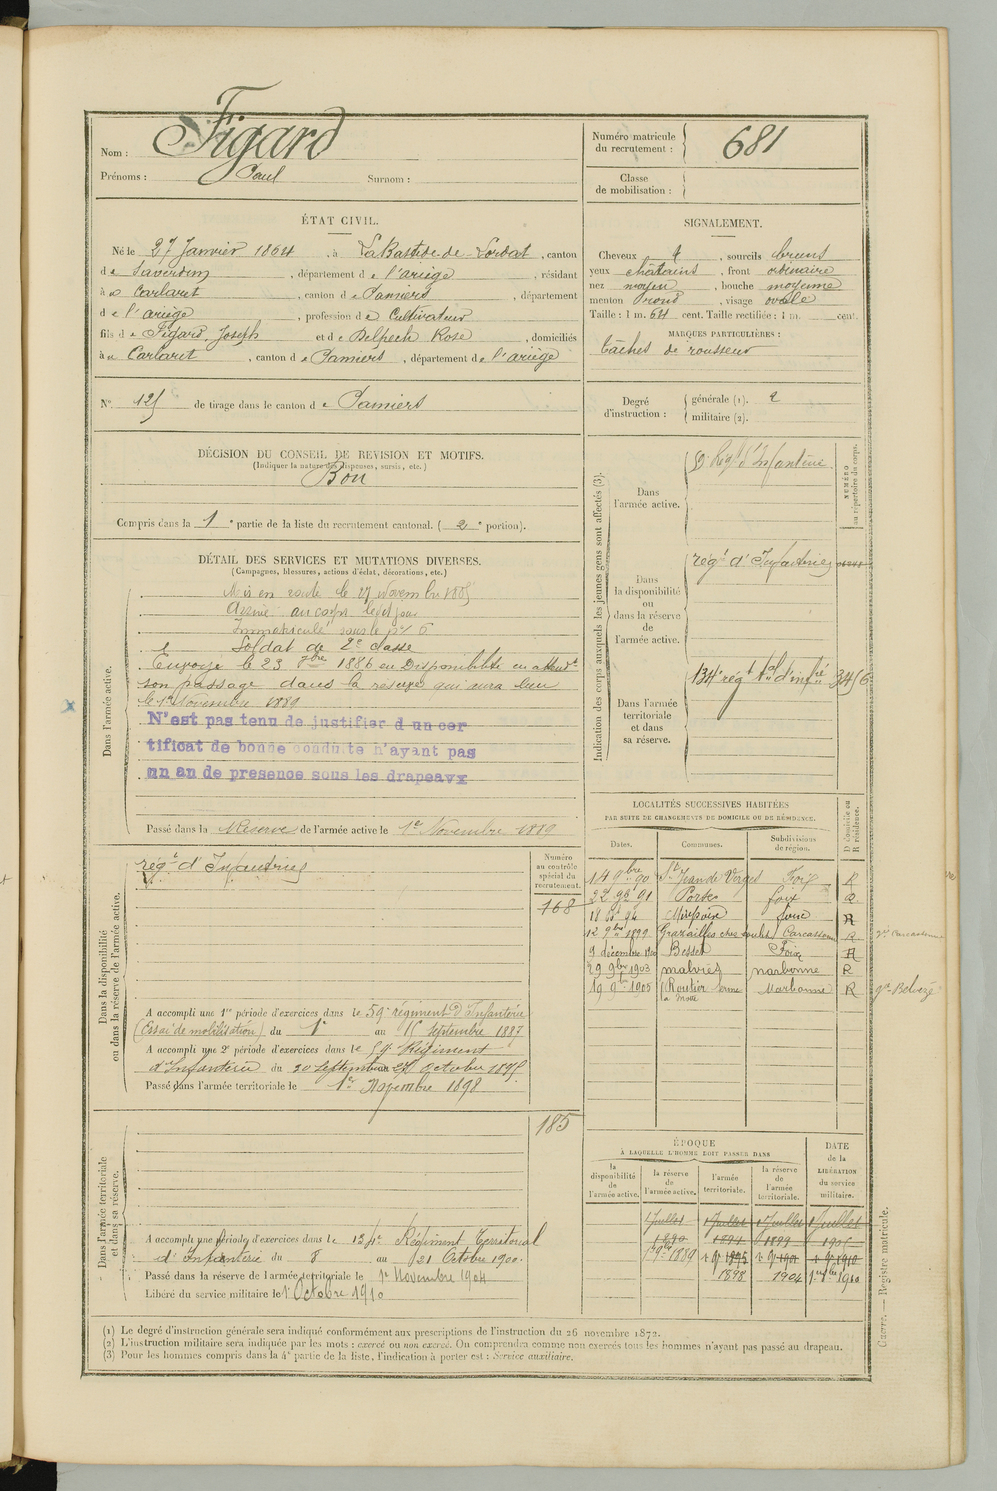 Nom : Figard
Prénoms : Paul Surnom :
Numéro matricule du recrutement : 681
Classe de mobilisation :
ÉTAT CIVIL.
Né le 27 Janvier 1864, à LaBastide-de-Lordat, canton
de Saverdun, département de l'ariège, résidant
à Carlaret, canton de Pamiers, département
de l'ariège, profession de Cultivateur
fils de Figard, Joseph et de Delpech Rose, domiciliés
à Carlaret, canton de Pamiers, département de l'ariège
N° 125 de tirage dans le canton de Pamiers
SIGNALEMENT.
Cheveux , sourcils bruns
yeux châtains, front ordinaire
nez moyen, bouche moyenne
menton rond, visage ovale
Taille : 1 m. 64 cent. Taille rectifiée : 1 m. cent.
MARQUES PARTICULIÈRES :
tâches de rousseur
Degré d'instruction : générale (1). 2
militaire (2).
DÉCISION DU CONSEIL DE REVISION ET MOTIFS.
(Indiquer la nature des dispenses, sursis, etc.)
Bon
Compris dans la 1e partie de la liste du recrutement cantonal. (2e portion).
DÉTAIL DES SERVICES ET MUTATIONS DIVERSES.
(Campagnes, blessures, actions d'éclat, décorations, etc.)
Dans l'armée active.
Mis en route le 27 Novembre 1885
Arrivé au corps le dit jour
Immatriculé sous le n°
Soldat de 2e classe
Envoyé le 23 7bre 1886 en Disponibilité en attendt
son passage dans la réserve qui aura lieu
le 1er Novembre 1889
N'est pas tenu de justifier d un cer
tificat de bonne conduite n'ayant pas
un an de presence sous les drapeaux
Passé dans la Réserve de l'armée active le 1er Novembre 1889
Indication des corps auxquels les jeunes gens sont affectés (3).
NUMÉRO au répertoire du corps.
Dans l'armée active.
Regt d'Infanterie
Dans la disponibilité ou dans la réserve de l'armée active.
régt d'Infanterie
Dans l'armée territoriale et dans sa réserve.
134e régt tal d'infie 3456
Dans la disponibilité ou dans la réserve de l'armée active.
régt d'Infanterie
Numéro au contrôle spécial du recrutement.
168
A accompli une 1re période d'exercices dans le 59e régiment d'Infanterie
(Essai de mobilisation) du 1er au 15 Septembre 1887
A accompli une 2e période d'exercices dans le 59e Régiment
d'Infanterie du 20 Septembre 27 Octobre 1895
Passé dans l'armée territoriale le 1er Novembre 1898
LOCALITÉS SUCCESSIVES HABITÉES
PAR SUITE DE CHANGEMENTS DE DOMICILE OU DE RÉSIDENCE.
Dates. Communes. Subdivisions de région. D domicile ou R résidence.
14 9bre 90 St Jean de Verges Foix R
22 9b 91 Portes foix R
18 94 Mirepoix foix R
12 9bre 1899 Grazailles Carcassonne R
9 décembre 1900 Besset Foix R
29 9bre 1903 malviès narbonne R
19 9bre 1905 Routier Narbonne R
gie Carcassonne
gie Belvèze
Dans l'armée territoriale et dans sa réserve.
185
A accompli une période d'exercices dans le 134e Régiment Territorial
d'Infanterie du 8 au 21 Octobre 1900.
Passé dans la réserve de l'armée territoriale le 1er Novembre 1904
Libéré du service militaire le 1er Octobre 1910
ÉPOQUE
À LAQUELLE L'HOMME DOIT PASSER DANS
DATE de la LIBÉRATION du service militaire.
la disponibilité de l'armée active. la réserve de l'armée active. l'armée territoriale. la réserve de l'armée territoriale.
1 Juillet 1 Juillet 1 Juillet 1 Juillet
1890 1894 1899 1905
1er 9bre 1889 1 9 1895 1 9 1901 1 9 1910
1898 1904 1er 8bre 1910
(1) Le degré d'instruction générale sera indiqué conformément aux prescriptions de l'instruction du 26 novembre 1872.
(2) L'instruction militaire sera indiquée par les mots : exercé ou non exercé. On comprendra comme non exercés tous les hommes n'ayant pas passé au drapeau.
(3) Pour les hommes compris dans la 4e partie de la liste, l'indication à porter est : Service auxiliaire.
Guerre. — Registre matricule.